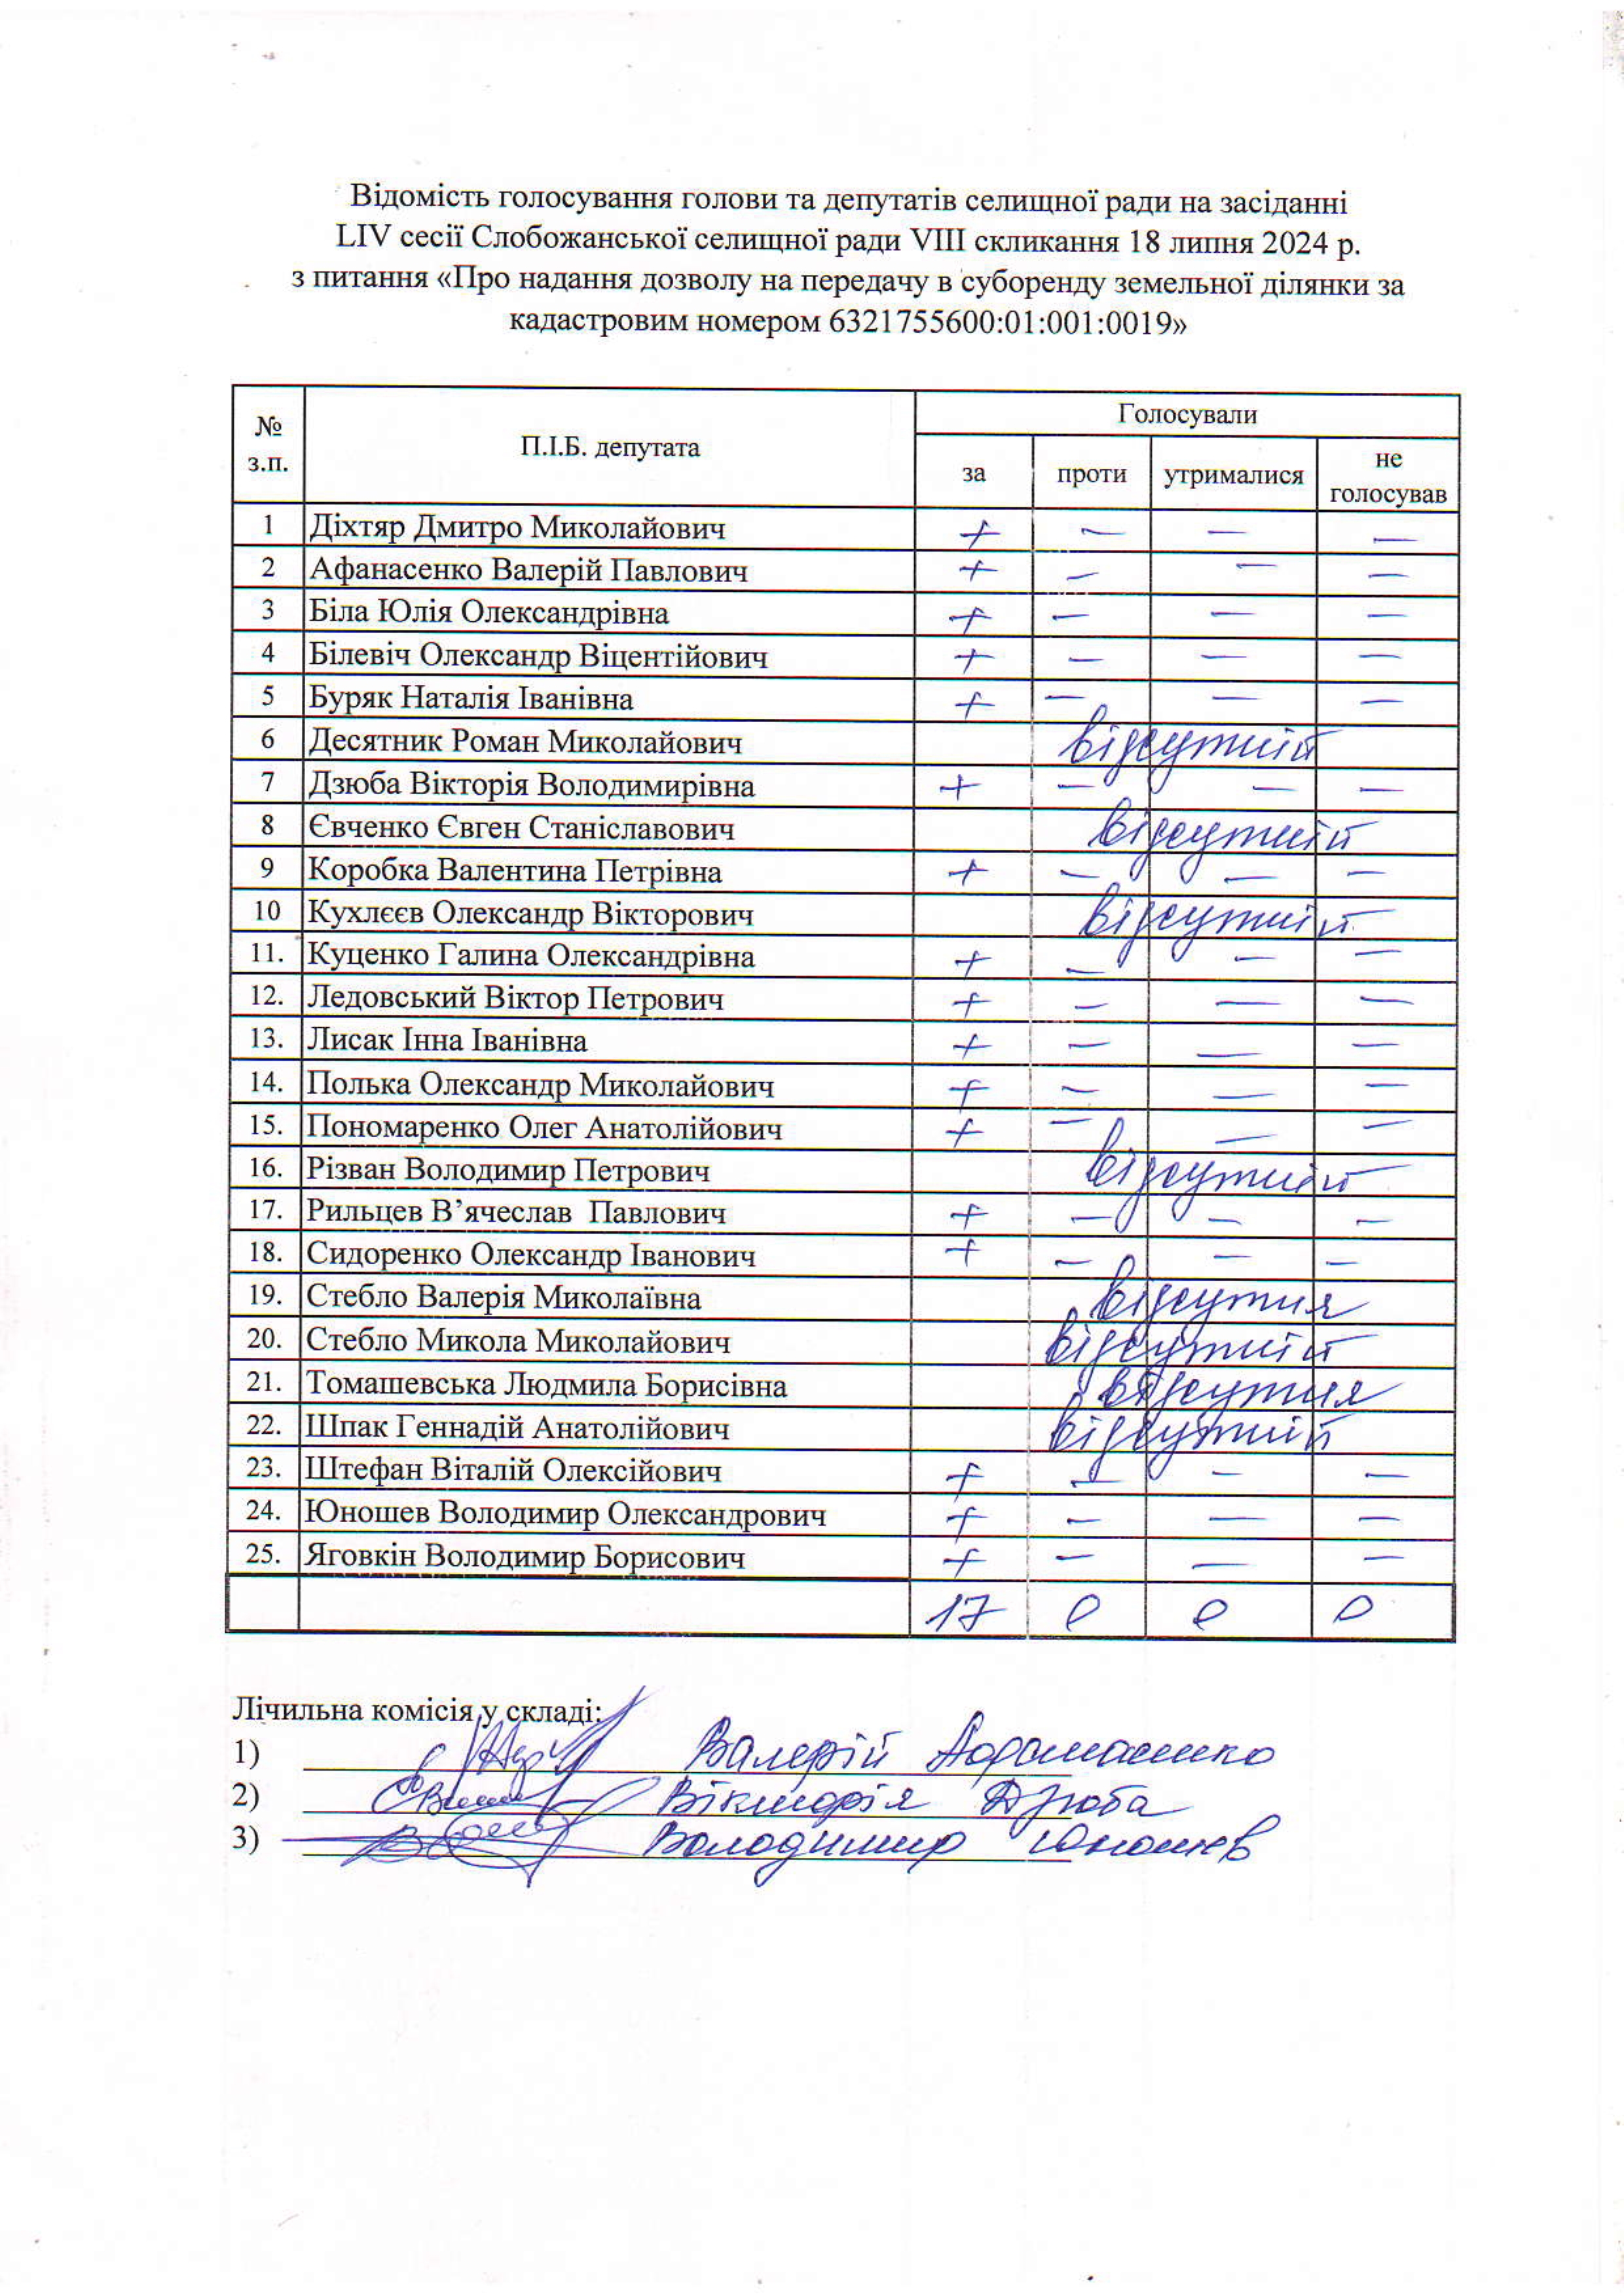 Відомість голосування голови та депутатів селищної ради на засіданні
LIV сесії Слобожанської селищної ради VIII скликання 18 липня 2024 р.
з питання «Про надання дозволу на передачу в суборенду земельної ділянки за
кадастровим номером 6321755600:01:001:0019»
№ з.п. П.І.Б. депутата Голосували
за проти утрималися не голосував
1 Діхтяр Дмитро Миколайович + — — —
2 Афанасенко Валерій Павлович + — — —
3 Біла Юлія Олександрівна + — — —
4 Білевіч Олександр Віцентійович + — — —
5 Буряк Наталія Іванівна + — — —
6 Десятник Роман Миколайович відсутній
7 Дзюба Вікторія Володимирівна + — — —
8 Євченко Євген Станіславович відсутній
9 Коробка Валентина Петрівна + — — —
10 Кухлєєв Олександр Вікторович відсутній
11. Куценко Галина Олександрівна + — — —
12. Ледовський Віктор Петрович + — — —
13. Лисак Інна Іванівна + — — —
14. Полька Олександр Миколайович + — — —
15. Пономаренко Олег Анатолійович + — — —
16. Різван Володимир Петрович відсутній
17. Рильцев В’ячеслав Павлович + — — —
18. Сидоренко Олександр Іванович + — — —
19. Стебло Валерія Миколаївна відсутня
20. Стебло Микола Миколайович відсутній
21. Томашевська Людмила Борисівна відсутня
22. Шпак Геннадій Анатолійович відсутній
23. Штефан Віталій Олексійович + — — —
24. Юношев Володимир Олександрович + — — —
25. Яговкін Володимир Борисович + — — —
17 0 0 0
Лічильна комісія у складі:
1) Валерій
2) Вікторія Дзюба
3) Володимир Юношев